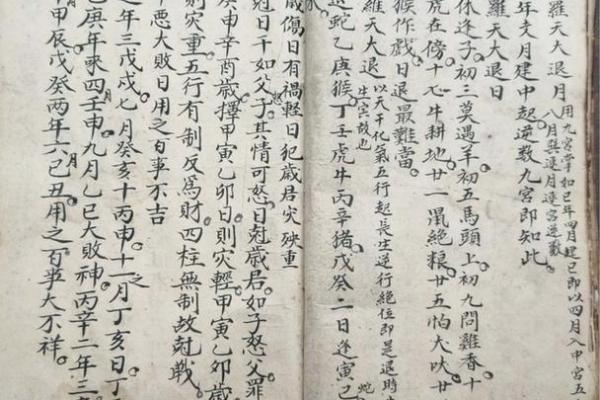 羅天大退月 用九宮掌如巳年四月建巳即以四月入中宮五
八月與建月逆宮逆數
年支月建中起逆數九宮即知此
羅天大退日
休逢子初三莫遇羊初五馬頭上初九問雞香十
虎在傍十七牛耕地廿一鼠絕粮廿五怕犬吠廿
猴作戲日退最難當
羅天大退 以天干化氣五行起長生逆行絕位即是退時
牛寅故也
蛇乙庚猴丁壬虎牛丙辛猪戊癸二日逢寅巳
歲傷日有禍輕日犯歲君災殃重
尅日干如父子其情可怒日尅歲君如子怒父罪
庚申辛酉歲擇甲寅乙卯日則災輕甲寅乙卯歲
則災重五行有制反爲財四柱無制故尅戰
干惡大敗日用之百事不吉
之年三戊戌七月癸亥十丙申十一月丁亥日丁
乙庚年四壬申九月乙巳大敗神丙辛二年三
甲辰戊癸兩年六月己丑用之百事大不祥